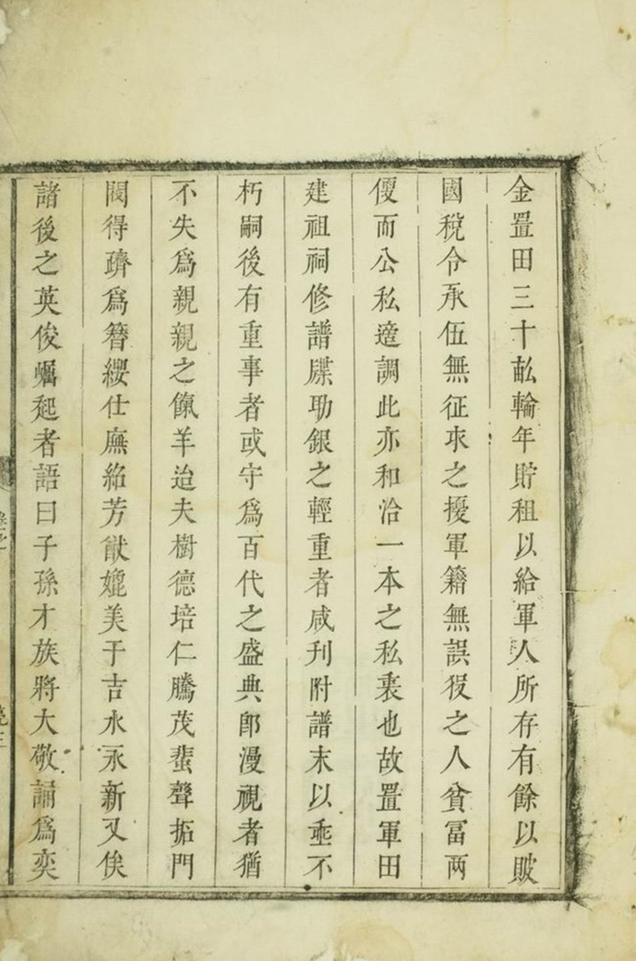 金置田三十畝輪年貯租以給軍人所存有餘以貱
國稅令承伍無征求之擾軍籍無誤役之人貧冨两
便而公私適調此亦和洽一本之私衷也故置軍田
建祖祠修譜牒助銀之輕重者咸刊附譜末以垂不
朽嗣後有重事者或守爲百代之盛典郎漫視者猶
不失爲親親之餼羊迨夫樹德培仁騰茂蜚聲拓門
閥得躋爲簪纓仕廡絡芳猷媲美于吉水永新又俟
諸後之英俊崛起者語曰子孫才族將大敬誦爲奕